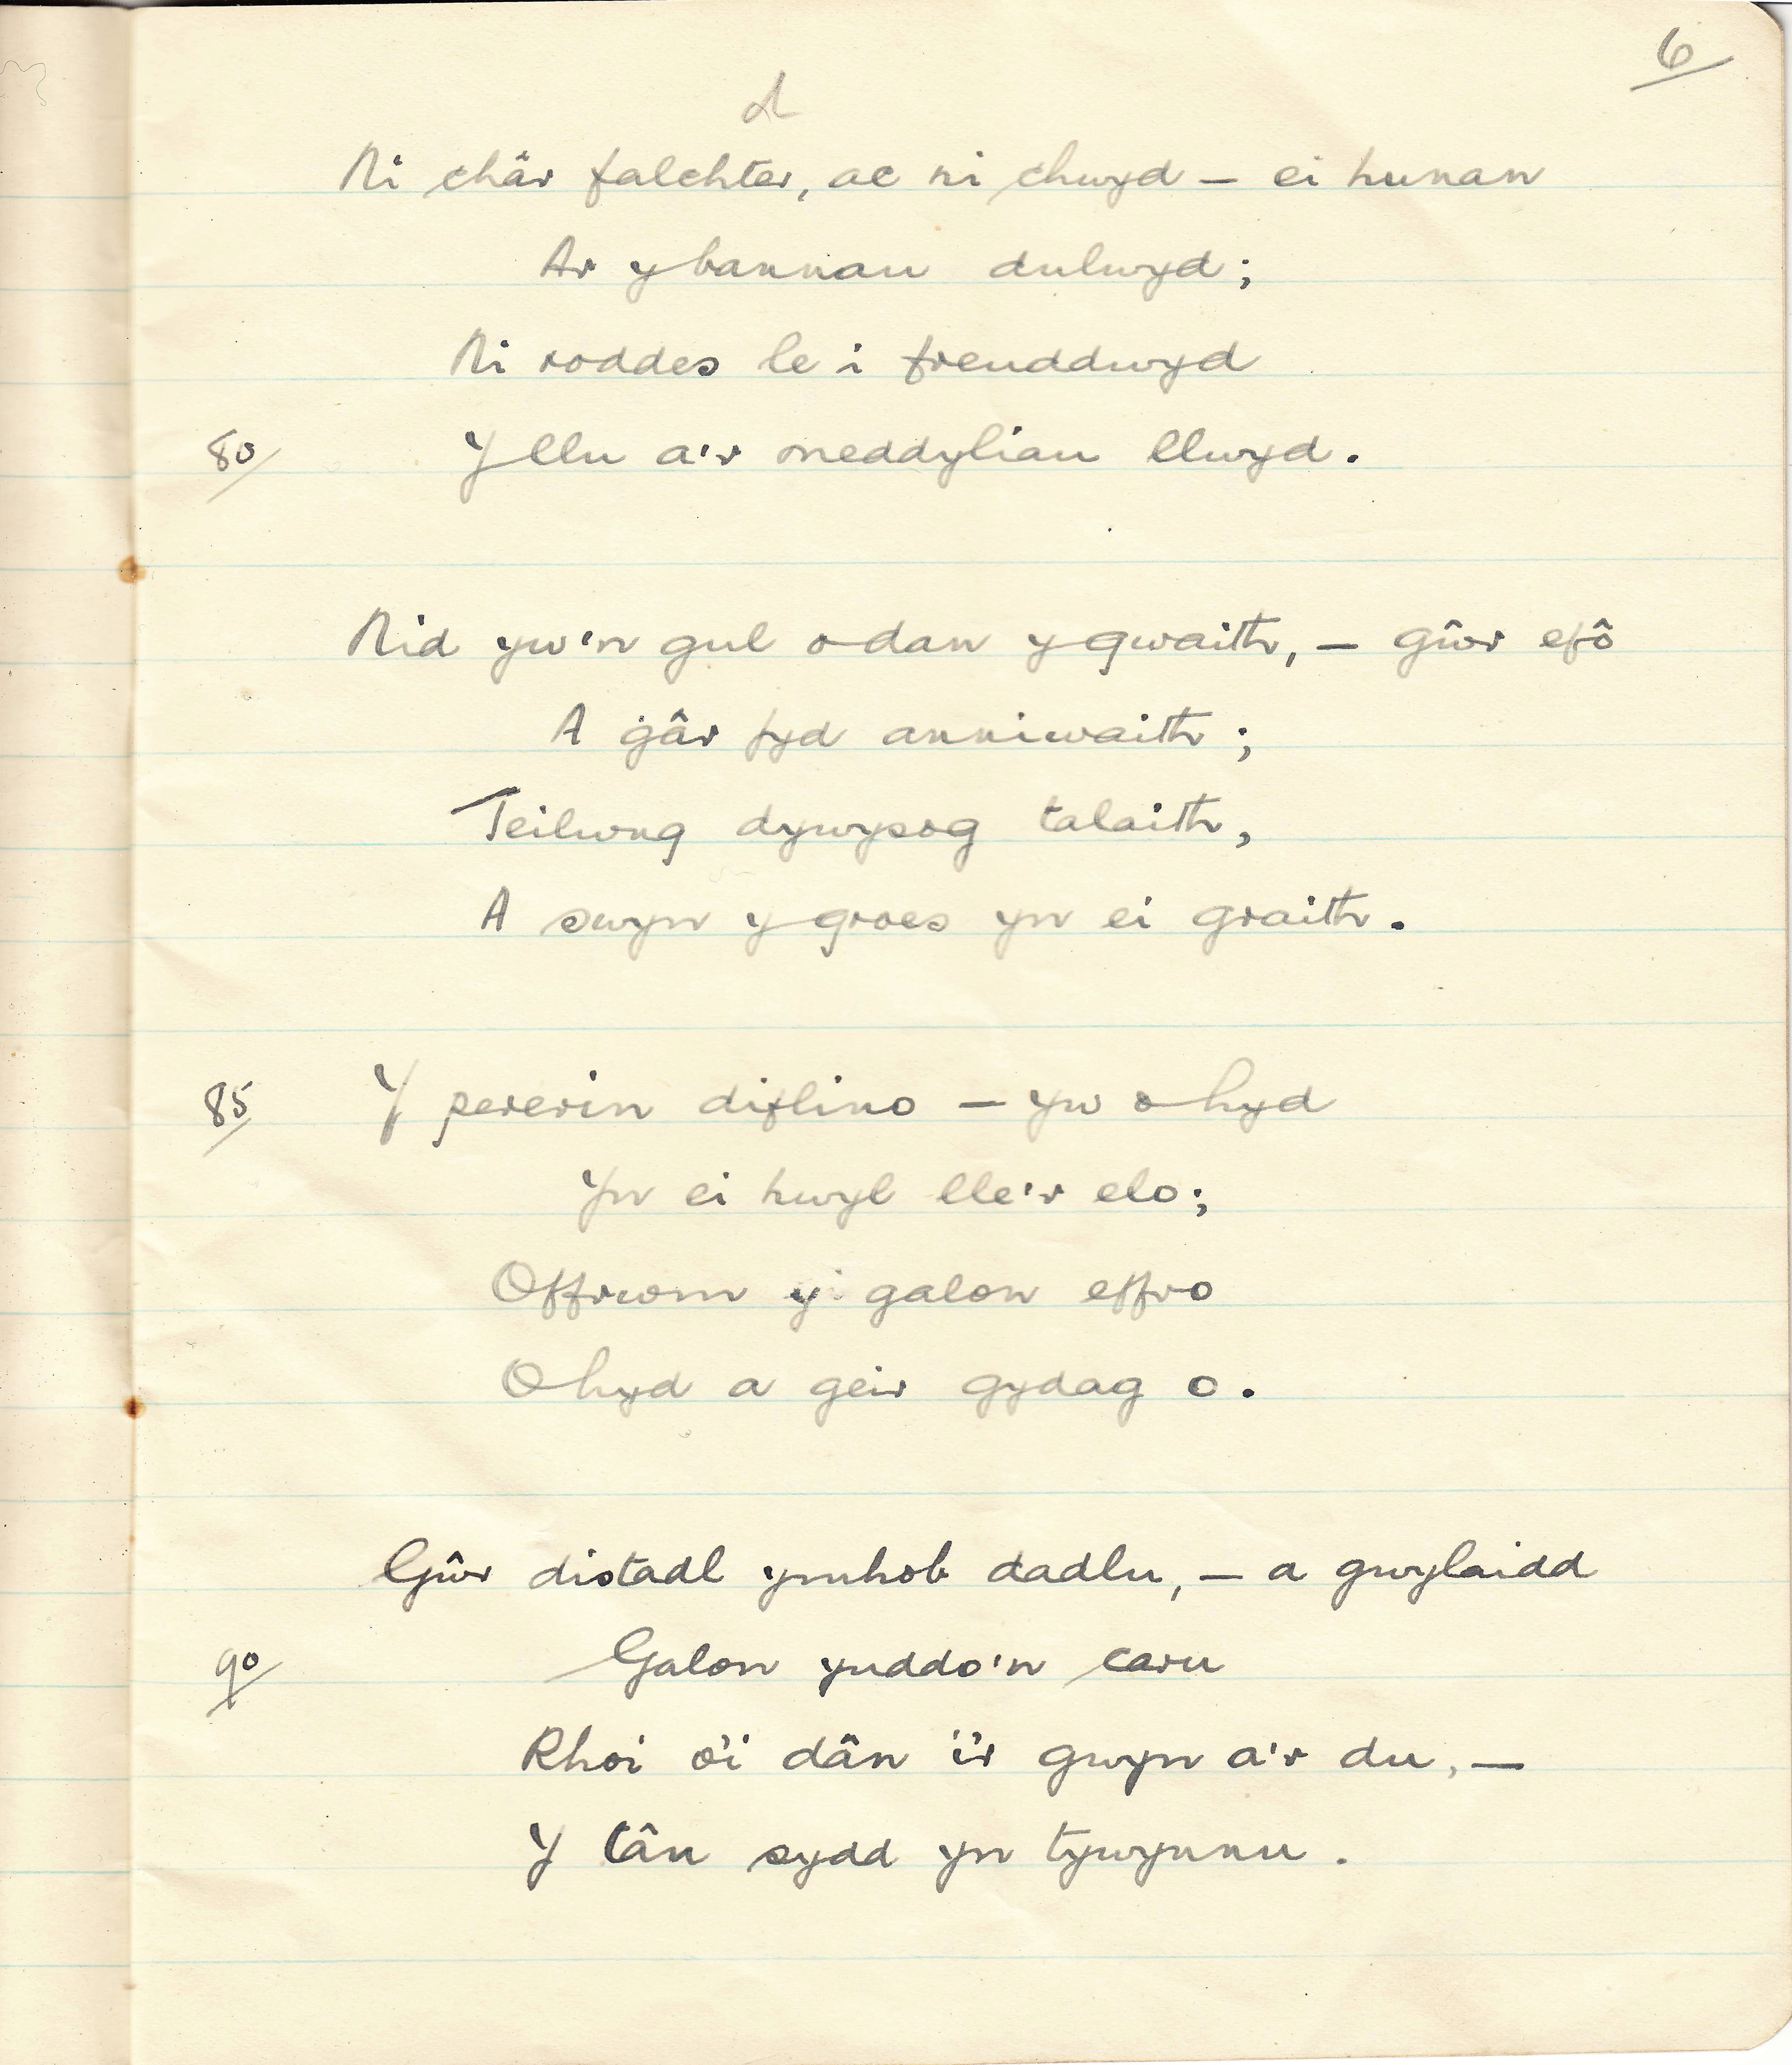 6
Ni châr falchter, ac ni chwyd – ei hunan
Ar y bannau dulwyd;
Ni roddes le i freuddwyd
80 Y llu a'r meddyliau llwyd.
Nid yw'n gul o dan y gwaith, – gŵr efô
A gâr fyd anniwaith;
Teilwng dywysog talaith,
A swyn y groes yn ei graith.
85 Y pererin diflino – yw o hyd
Yn ei hwyl lle'r elo;
Offrwm y galon effro
O hyd a geir gydag o.
Gŵr distadl ymhob dadlu, – a gwylaidd
90 Galon ynddo'n caru
Rhoi o'i dân i'r gwyn a'r du, –
Y tân sydd yn tywynnu.